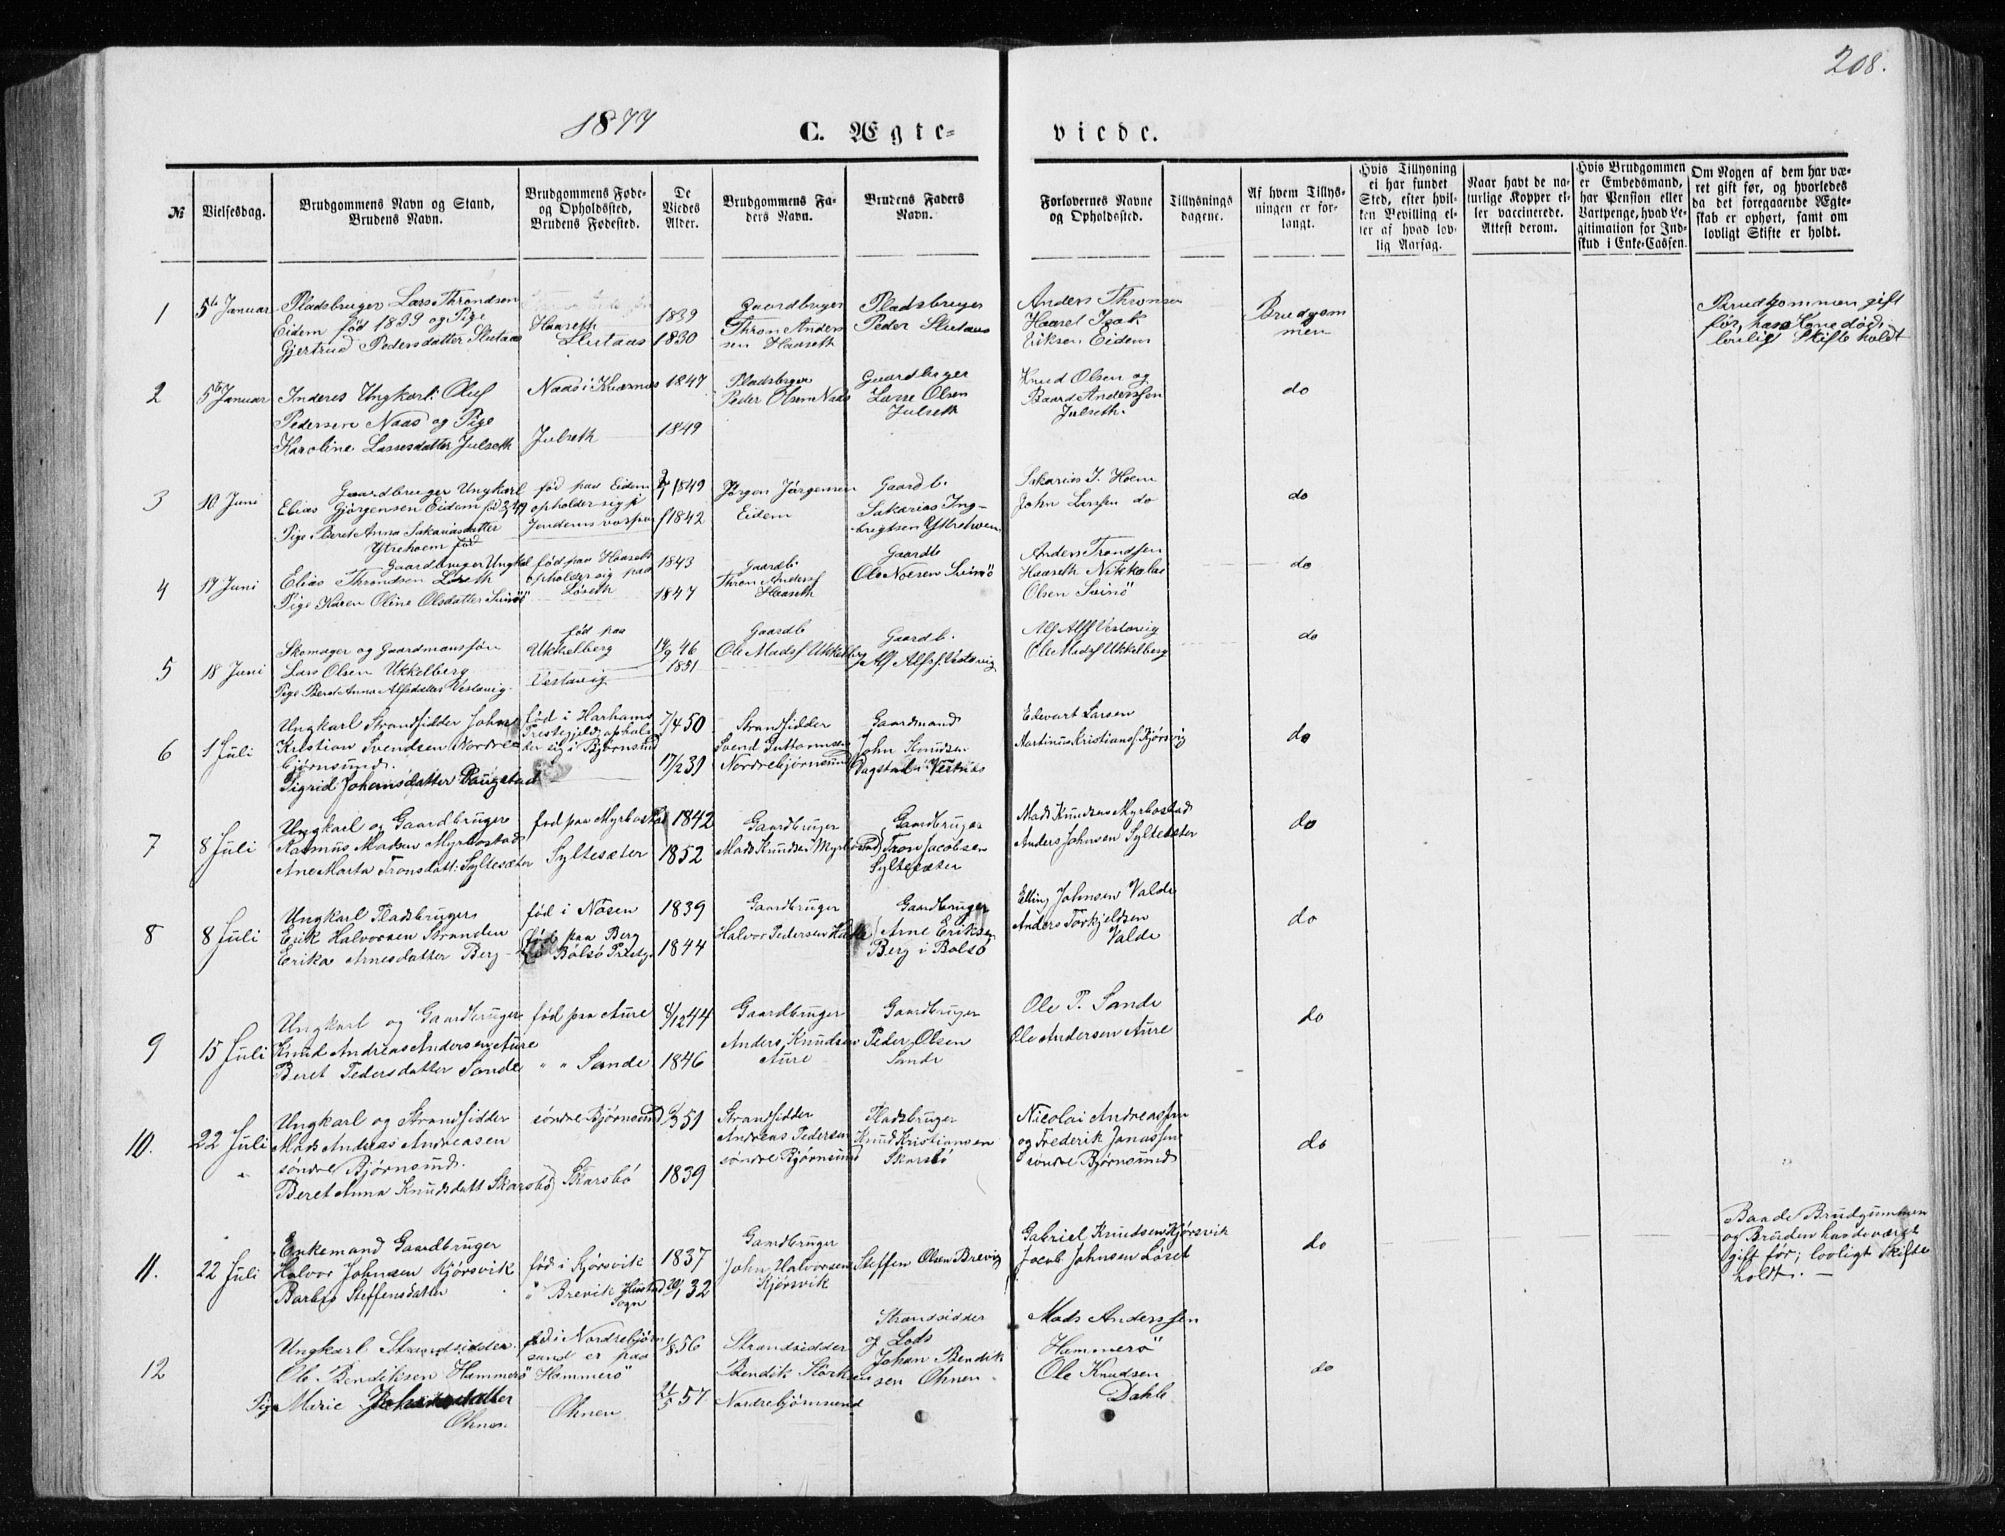 208.
1877
C. Ægte-
viede.
№
Vielsesdag.
Brudgommens Navn og Stand,
Brudens Navn.
Brudgommens Føde-
og Opholdssted,
Brudens Fødested.
De
Viedes
Alder.
Brudgommens Fa-
ders Navn.
Brudens Faders
Navn.
Forlovernes Navne
og Opholdssted.
Tillysnings
dagene.
Af hvem Tillys-
ningen er for-
langt.
Hvis Tillysning
ei har fundet
Sted, efter hvil-
ken Bevilling el-
ler af hvad lov-
lig Aarsag.
Naar havt de na-
turlige Kopper el-
ler vaccinerede.
Attest derom.
Hvis Brudgommen
er Embedsmand,
har Pension eller
Vartpenge, hvad Le-
gitimation for Ind-
skud i Enke-Cassen.
Om Nogen af dem har væ-
ret gift før, og hvorledes
da det foregaaende Ægte-
skab er ophørt, samt om
lovligt Skifte er holdt.
1
5te Januar
Pladsbruger Lars Throndsen
Eidem fød 1839 og Pige
Gjertrud Pedersdatter Slutaas
Haaseth
Slutaas
1839
1830
Gaardbruger
Thron Anders
sen Haaseth
Pladsbruger
Peder Slutaas
Anders Thronsen
Haaset Isak
Eriksen Eidem
Brudgom
men
Brudgommen gift
før, hans Kone død;
lovlig Skifte holdt
2
5te Januar
Inderes Ungkarl: Oluf
Pedersen Naas og Pige
Karoline Lassesdatter Julseth
Naas i Kværnes
Julseth
1847
1849
Pladsbruger
Peder Olsen Naas
Gaardbruger
Lasse Olsen
Julseth
Knud Olsen og
Baard Anderssen
Julseth.
do
3
10 Juni
Gaardbruger Ungkarl
Elias Gjørgensen Eidem
Pige Beret Anna Sakariasdatter
Ytrehoem fød
fød paa Eidem
opholder sig i
1849
1842
Jørgen Jørgensen
Eidem
Gaardb.
Sakarias Ing-
brigtsen Ytrehoem
Sakarias I. Hoem
John Larssen do
do
4
17 Juni
Gaardbruger Ungkal
Elias Throndsen Løseth
Pige Karen Oline Olsdatter Svinø
fød paa Haaseth
opholder sig paa
Løseth
1843
1847
Gaardb.
Thron Andersf
Haaseth
Gaardb
Ole Noesen Svinø
Anders Trondsen
Haaseth Nikkolas
Olsen Svinø
do
5
18 Juni
Skomager og Gaardmanssøn
Lars Olsen Ukkelberg
Pige Beret Anna Alfsdatter Vestavig
fød paa
Ukkelberg
Vestavig
14/9 46
1851
Gaardb
Ole Madsf Ukkelberg
Gaardb.
Alf Alfsf. Vestavig
Alf Alff Vestavig
Ole Madsf Ukkelberg
do
6
1 Juli
Ungkarl Strandsidder Johan
Kristian Svendsen Nordre
Bjørnsund.
Sigrid Johansdatter Vaagstad
fød i Harhams
Prestegjeld, ophol-
der sig i Bjørnsund
7/4 50
17/2 39
Strandsidder
Svend Guttormsen
Nordrebjørnsund
Gaardmand
John Knudsen
Vagstad i Vestnæs
Edevart Larsen
Martinus Kristiansf. Kjørsvig
do
7
8 Juli
Ungkarl og Gaardbruger
Rasmus Madsen Myrbostad
Ane Marta Tronsdatt: Syltesæter
fød paa Myrbostad
Syltesæter
1842
1852
Gaardbruger
Mads Knudsen Myrbostad
Gaardbruger
Tron Jacobsen
Syltesæter
Mads Knudsen Myrbostad
Anders Johnsen Syltesæter
do
8
8 Juli
Ungkarl Pladsbruger
Erik Halvorsen Stranden
Erika Arnesdatter Berg
fød i Nøsen
fød paa Berg
Bolsø Prestg.
1839
1844
Gaardbruger
Halvor Pedersen
Gaardbruger
Arne Eriksen
Berg i Bolsø
Elling Johnsen Valde
Anders Torkjeldsen
Valde
do
9
15 Juli
Ungkarl og Gaardbruger
Knud Andreas Andersen Aure
Beret Pedersdatter Sande
fød paa Aure
" " Sande
8/12 44
1846
Gaardbruger
Anders Knudsen
Aure
Gaardbruger
Peder Olsen
Sande
Ole P. Sande
Ole Andersen Aure
do
10.
22 Juli
"
Ungkarl og Strandsidder
Mads Andreas Andreasen
søndre Bjørnsund.
Beret Anna Knudsdatt Skarsbø
søndre Bjørnsund
Skarsbø
51
1839
Strandsidder
Andreas Pedersen
søndre Bjørnsund
Pladsbruger
Knud Kristiansen
Skarsbø
Nicolai Andreassen
og Frederik Jonassen
søndre Bjørnsund
do
11.
22 Juli
Enkemand Gaardbruger
Halvor Johnsen Kjørsvik
Barbro Steffensdatter
fød i Kjørsvik
" Brevik Hustad
Sogn
1837
20/1 32
Gaardbruger
John Halvorsen
Kjørsvik
Steffen Olsen Brevig
Gabriel Knudsen Kjørsvik
Jacob Johnsen Løset
do
Baade Brudgummen
og Bruden havde været
gift før; lovligt Skifte
holdt. —
12
Ungkarl Strandsidder
Ole Bendiksen Hammerø
Pige Marie Johansdatter
Ohnen
fød i Nordrebjørn
sund er paa
Hammerø
Ohnen
56
57
Strandsidder
Bendik Størksen
Nordrebjørnsund
Strandsidder
og Lods
Johan Bendik
sen Ohnen
Mads Anderssen
Hammerø
Ole Knudsen
Dahle
do